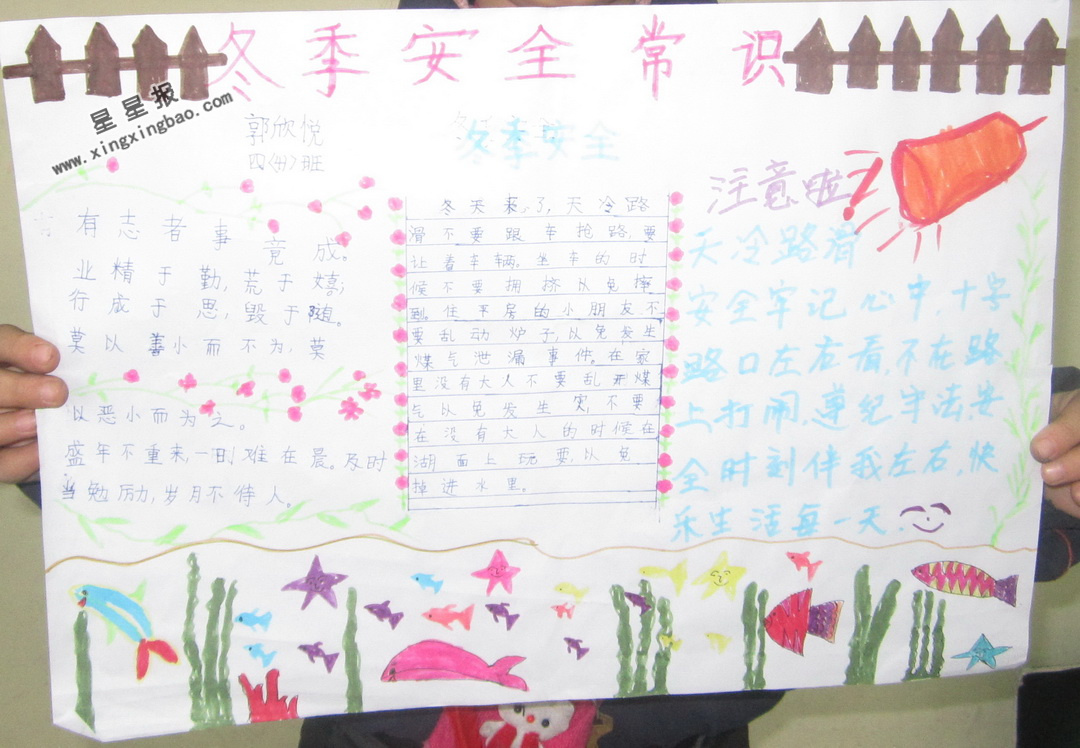 冬季安全常识
星星报
www.xingxingbao.com
郭欣悦
四〈4〉班
有志者事竟成。
业精于勤,荒于嬉;
行成于思,毁于随。
莫以善小而不为,莫
以恶小而为之。
盛年不重来,一日难在晨。及时
当勉励力,岁月不待人。
冬季安全
冬天来了,天冷路
滑不要跟车抢路,要
让着车辆。坐车的时
候不要拥挤以免撞
到住平房的小朋友不
要乱动炉子,以免发生
煤气泄漏事件。在家
里没有大人不要乱开煤
气以免发生灾,不要
在没有大人的时候在
湖面上玩耍,以免
掉进水里。
注意啦!
天冷路滑
安全牢记心中,十字
路口左右看,不在路
上打闹,遵纪守法安
全时刻伴我左右,快
乐生活每一天.